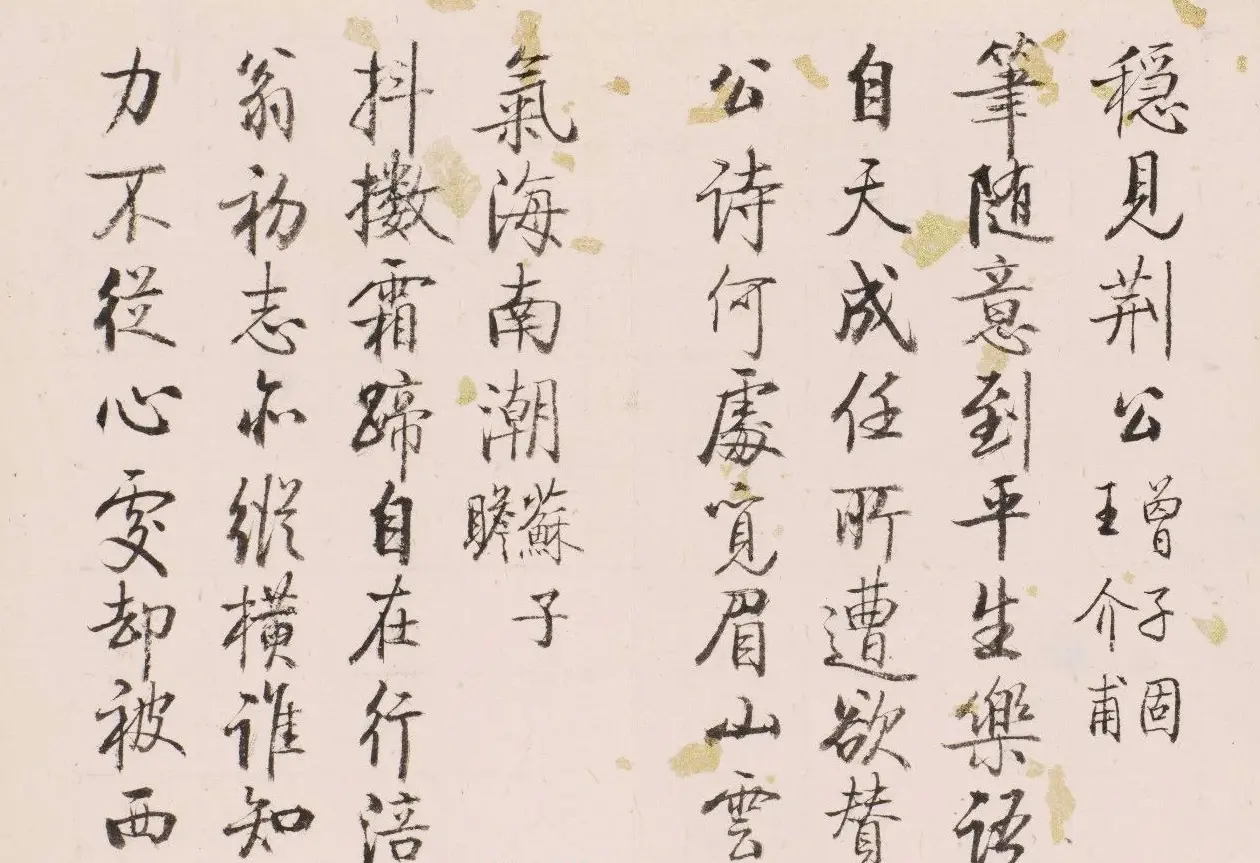 穩見荆公 曾子固 王介甫
筆随意到平生樂語
自天成任所遭欲贊
公诗何處覓眉山雲
氣海南潮 蘇子瞻
抖擻霜蹄自在行涪
翁初志亦縱橫誰知
力不從心處却被西